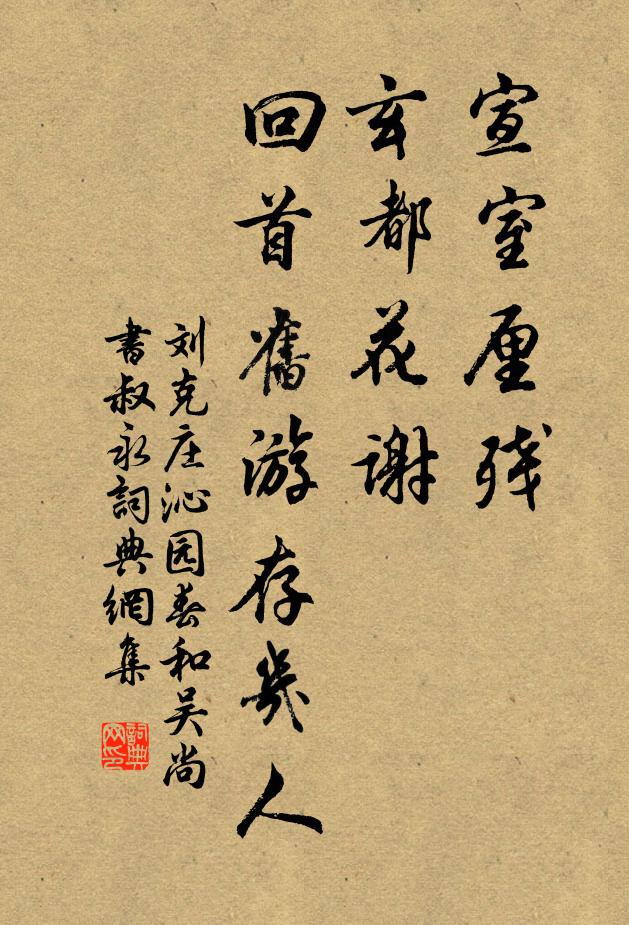 宣室厘残
玄都花谢
回首舊游存幾人
刘克庄沁园春和吴尚
書叔永詞典網集
詞典
网印